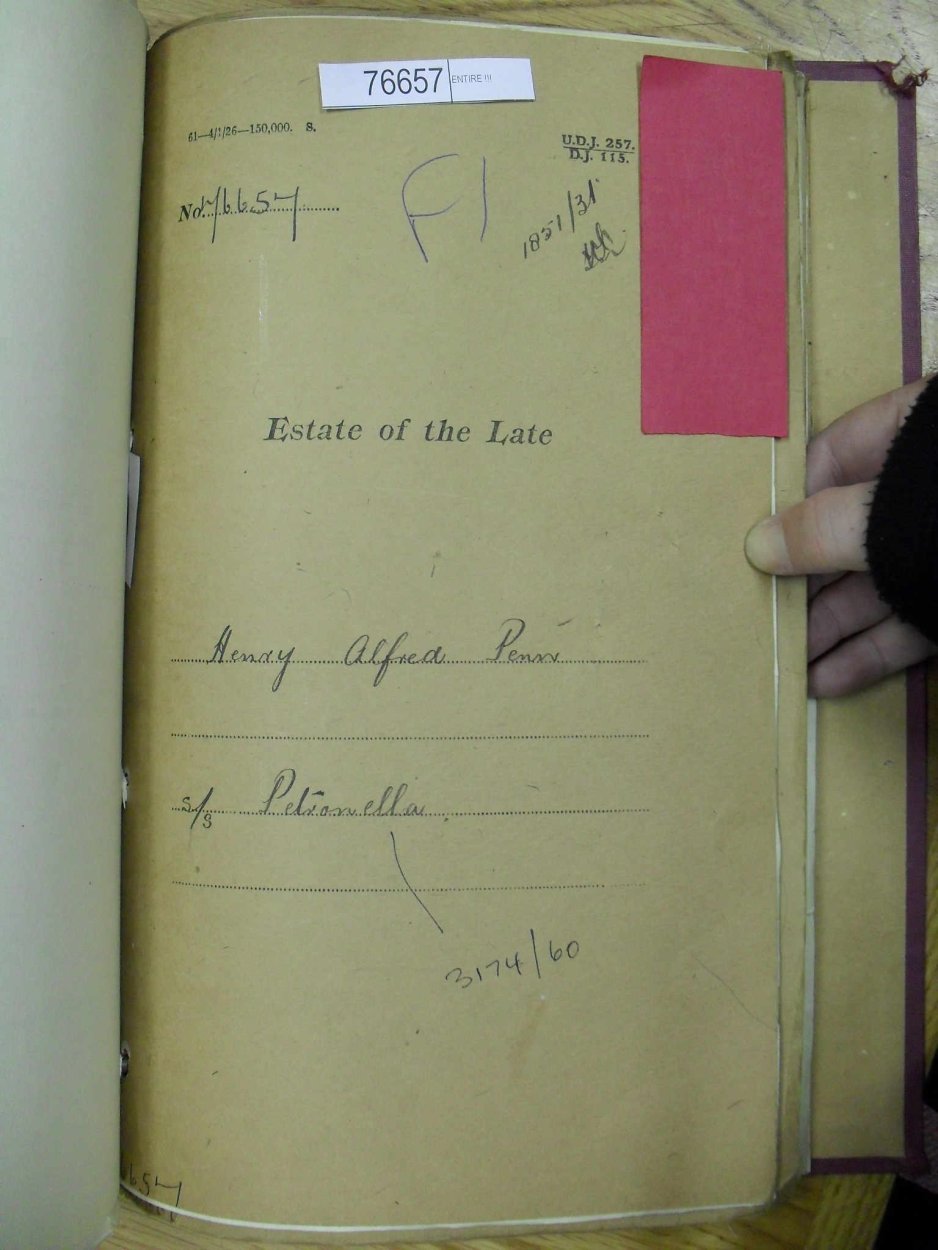 76657 ENTIRE !!!
61—4/1/26—150,000. S.
U.D.J. 257.
D.J. 115.
No. 76657
1851/31
Estate of the Late
Henry Alfred Penn
s/s Petronella
3174/60
657